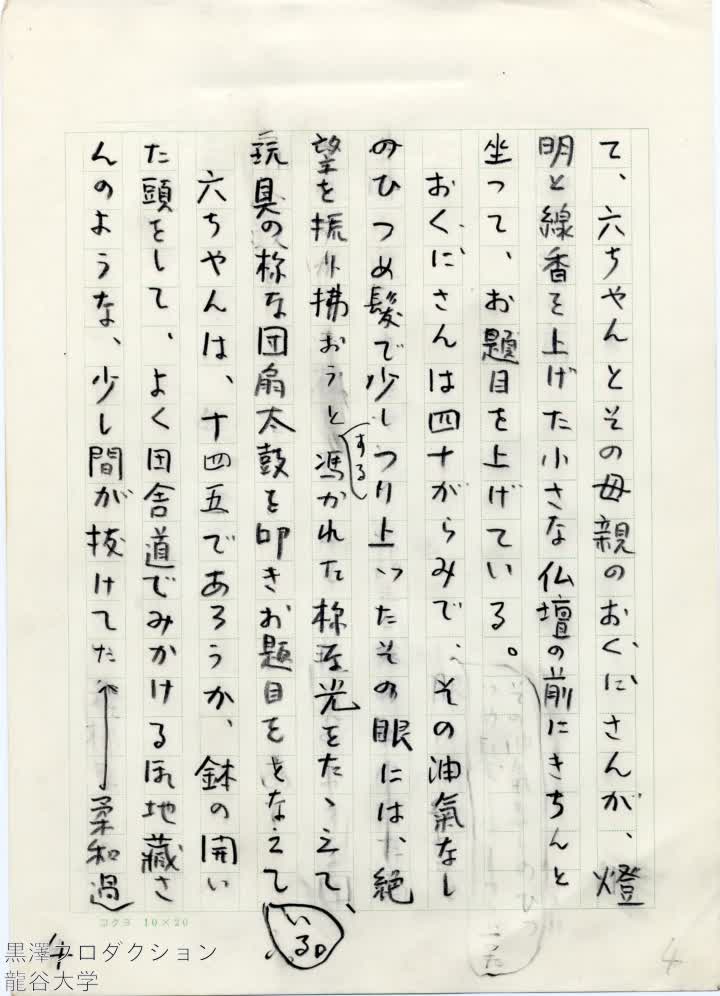 て、六ちゃんとその母親のおくにさんが、燈
明と線香を上げた小さな仏壇の前にきちんと
坐って、お題目を上げている。
おくにさんは四十がらみで、その油氣なし
のひつめ髪で少しつり上ったその眼には、絶
望を振り拂おうと
する
憑かれた様な光をたゝえて、
玩具の様な団扇太鼓を叩きお題目をとなえて
いる。
六ちゃんは、十四五であろうか、鉢の開い
た頭をして、よく田舎道でみかける
地藏さ
んのような、少し間が抜けてた
柔和過
コクヨ 10×20
4
4
黒澤プロダクション
龍谷大学